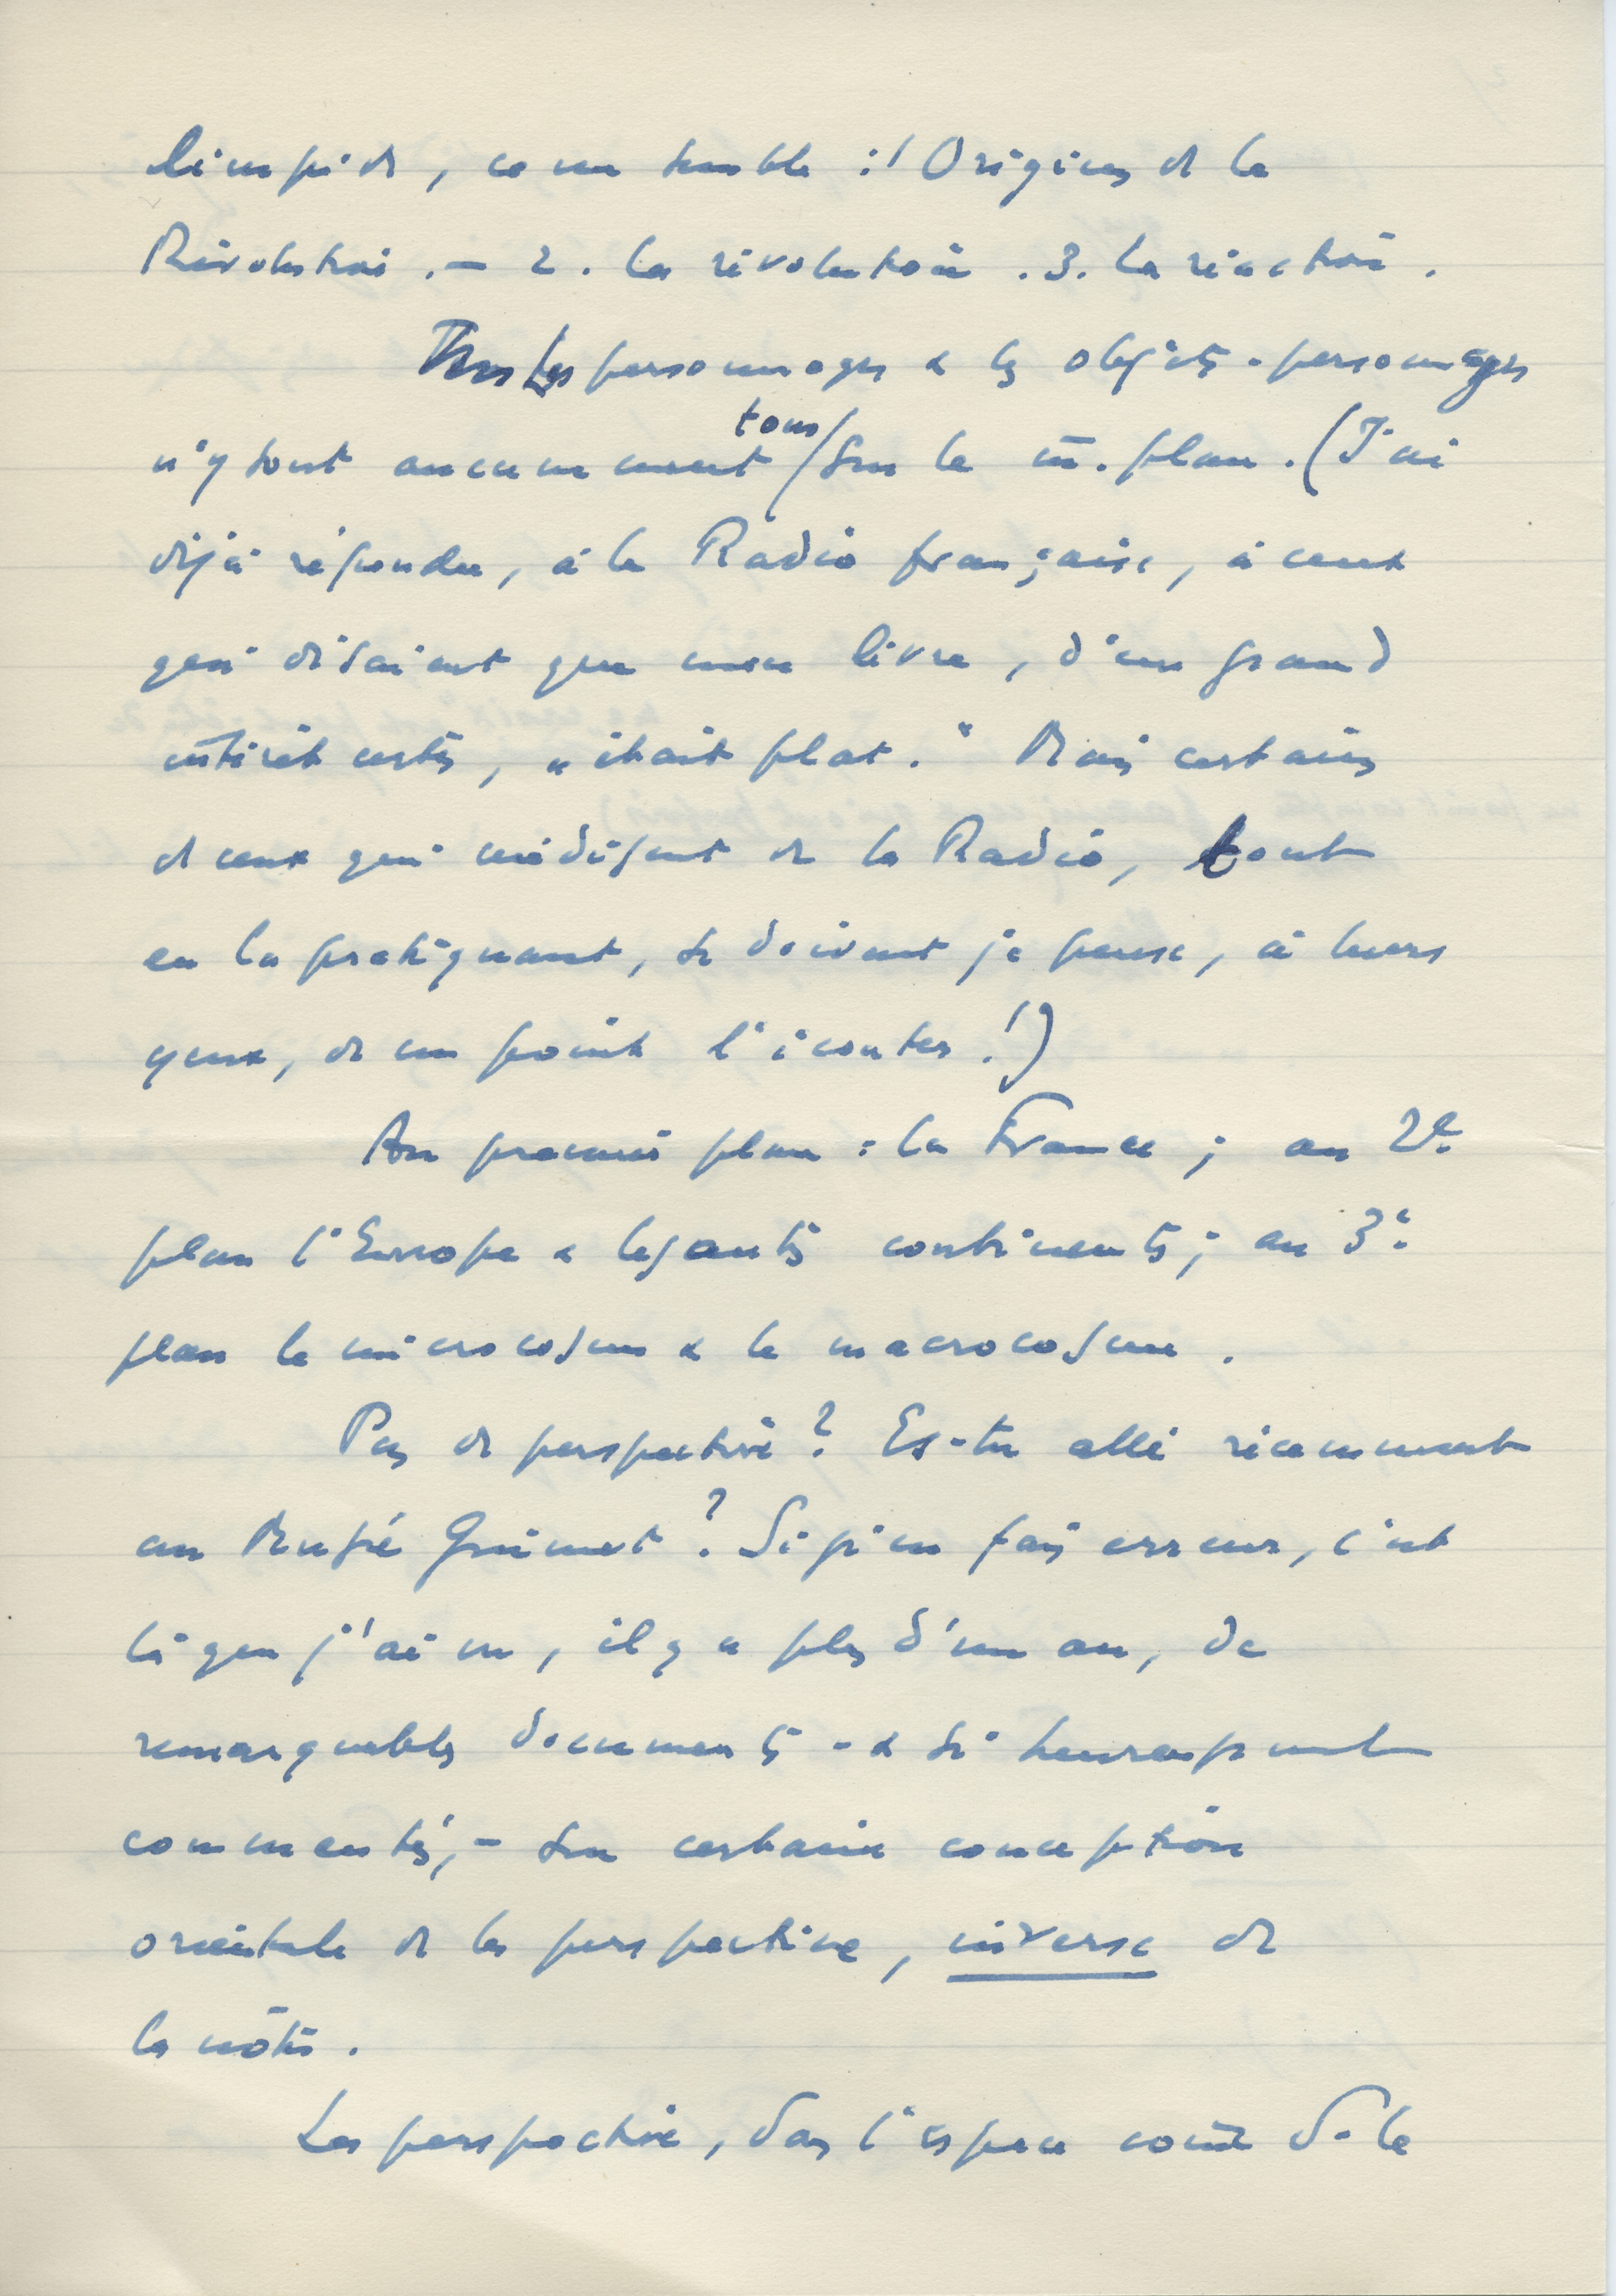 limpide, ce me semble : 1 Origines de la
Révolution. – 2. La révolution. 3. La réaction.
Les personnages & les objets-personnages
n'y sont aucunement tous sur le m̄. plan. (J'ai
déjà répondu, à la Radio française, à ceux
qui disaient que mon livre, d'un grand
intérêt certes, "était plat." Mais certains
de ceux qui médisent de la Radio, tout
en la pratiquant, se doivent je pense, à leurs
yeux, de ne point l'écouter !)
Au premier plan : la France ; au 2e
plan l'Europe & les autres continents ; au 3e
plan le microcosme & le macrocosme.
Pas de perspective ? Es-tu allé récemment
au Musée Guimet ? Si je n'en fais erreur, c'est
là que j'ai vu, il y a plus d'un an, de
remarquables documents - & si heureusement
commentés, - sur certaine conception
orientale de la perspective, inverse de
la nôtre.
La perspective, dans l'espace comme ds le